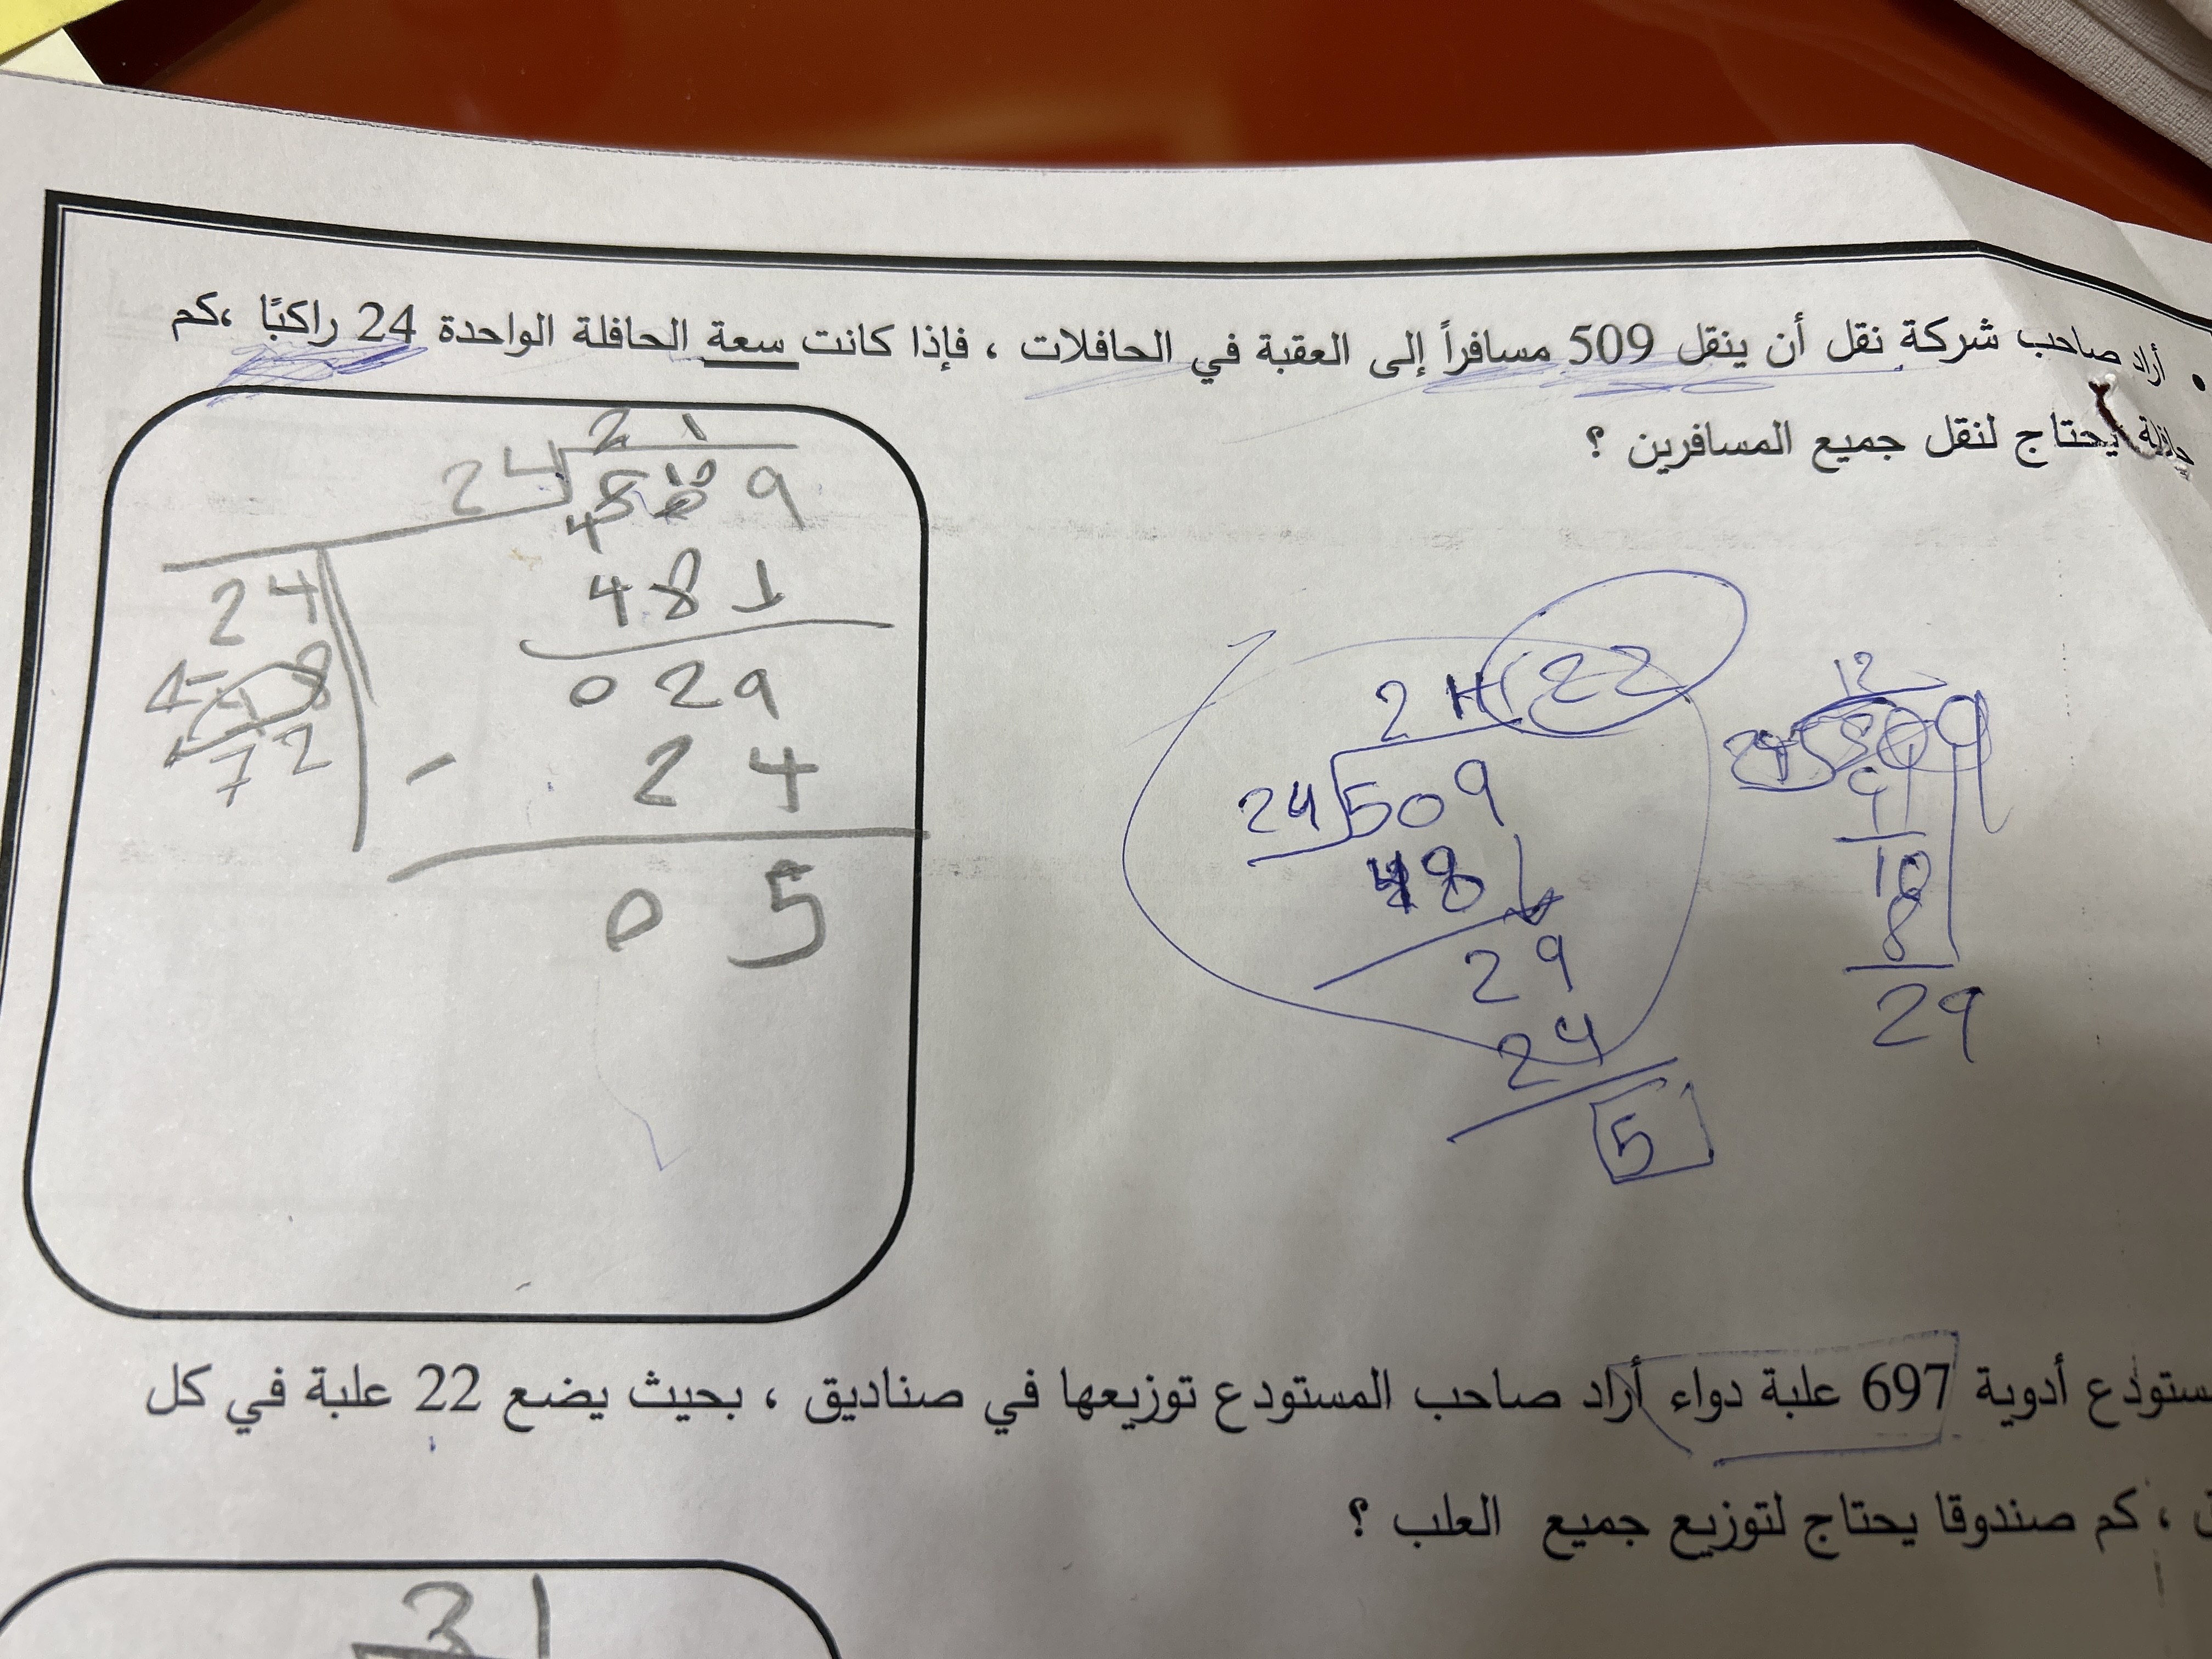 • أراد صاحب شركة نقل أن ينقل 509 مسافراً إلى العقبة في الحافلات ، فإذا كانت سعة الحافلة الواحدة 24 راكبًا ،كم
حافلة يحتاج لنقل جميع المسافرين ؟
2 1
24 509
10
4
48
029
24
48
72
- 24
05
21 22
24 509
48
29
24
5
12
509
4
10
8
29
مستودع أدوية 697 علبة دواء أراد صاحب المستودع توزيعها في صناديق ، بحيث يضع 22 علبة في كل
، كم صندوقا يحتاج لتوزيع جميع العلب ؟
31